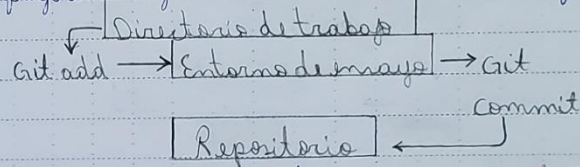 Directorio de trabajo
Git add → Entorno de mayo → Git
commit
Repositorio